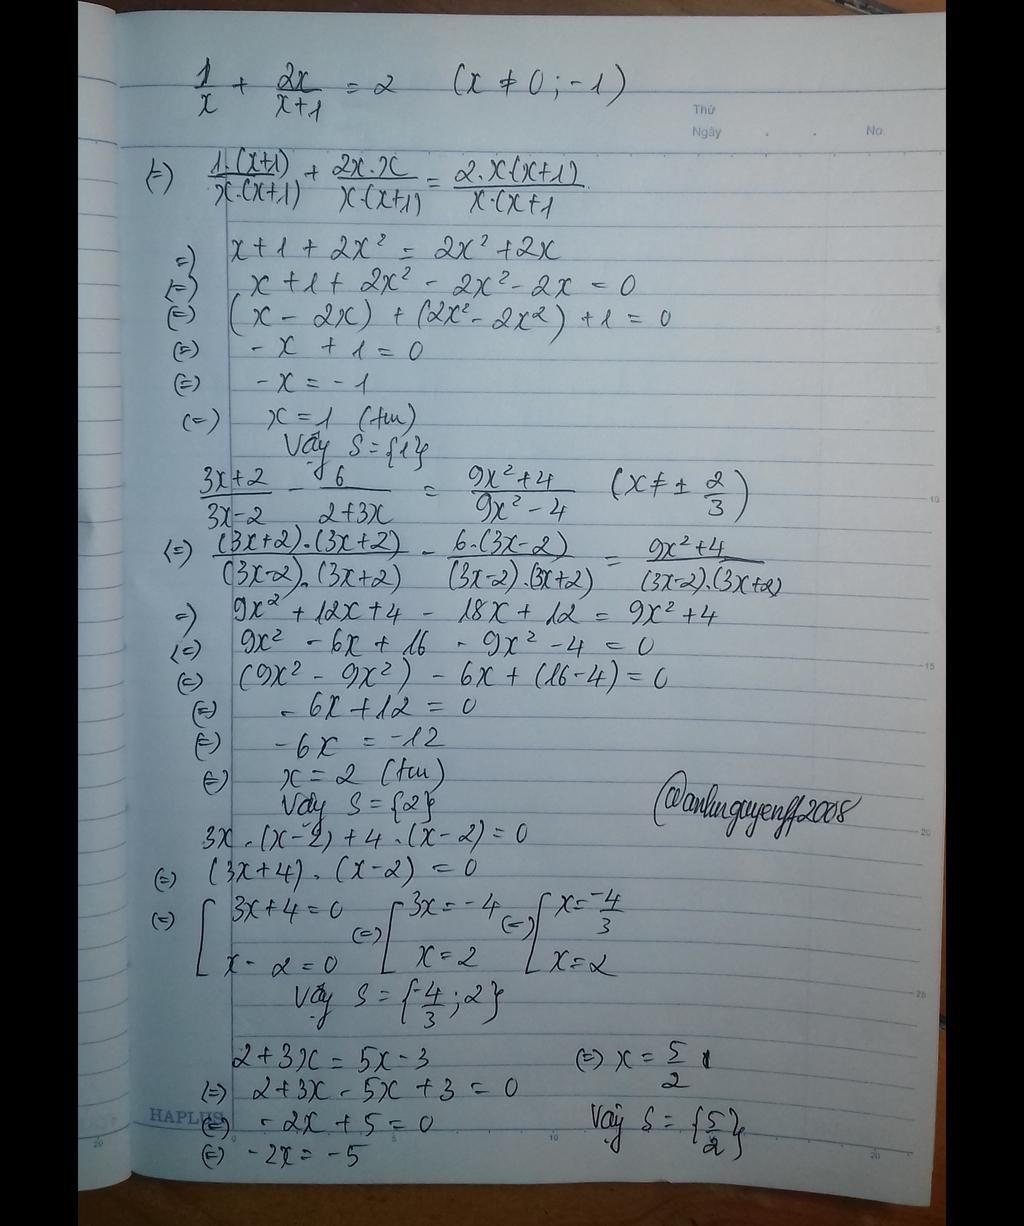 1/x + 2x/(x+1) = 2 (x ≠ 0; -1)
Thứ
Ngày . . No
(=) 1.(x+1)/x.(x+1) + 2x.x/x.(x+1) = 2.x(x+1)/x.(x+1
=) x+1+2x² = 2x²+2x
(=) x+1+2x²-2x²-2x = 0
(=) (x-2x)+(2x²-2x²)+1=0
(=) -x+1=0
(=) -x=-1
(=) x=1 (tm)
Vậy S={1}
(3x+2)/(3x-2) - 6/(2+3x) = (9x²+4)/(9x²-4) (x≠± 2/3)
(=) (3x+2).(3x+2)/(3x-2).(3x+2) - 6.(3x-2)/(3x-2).(3x+2) = 9x²+4/(3x-2).(3x+2)
=) 9x²+12x+4-18x+12=9x²+4
(=) 9x²-6x+16-9x²-4=0
(=) (9x²-9x²)-6x+(16-4)=0
(=) -6x+12=0
(=) -6x=-12
(=) x=2 (tm)
Vậy S={2}
@anhnguyenff2008
3x.(x-2)+4.(x-2)=0
(=) (3x+4).(x-2)=0
(=) [ 3x+4=0 (=) [ 3x=-4 (=) [ x=-4/3
x-2=0 x=2 x=2
Vậy S={-4/3;2}
2+3x=5x-3
(=) 2+3x-5x+3=0
HAPLUS
(=) -2x+5=0
(=) -2x=-5
(=) x=5/2
Vậy S={5/2}
5
10
15
20
25
20 0 5 10 20